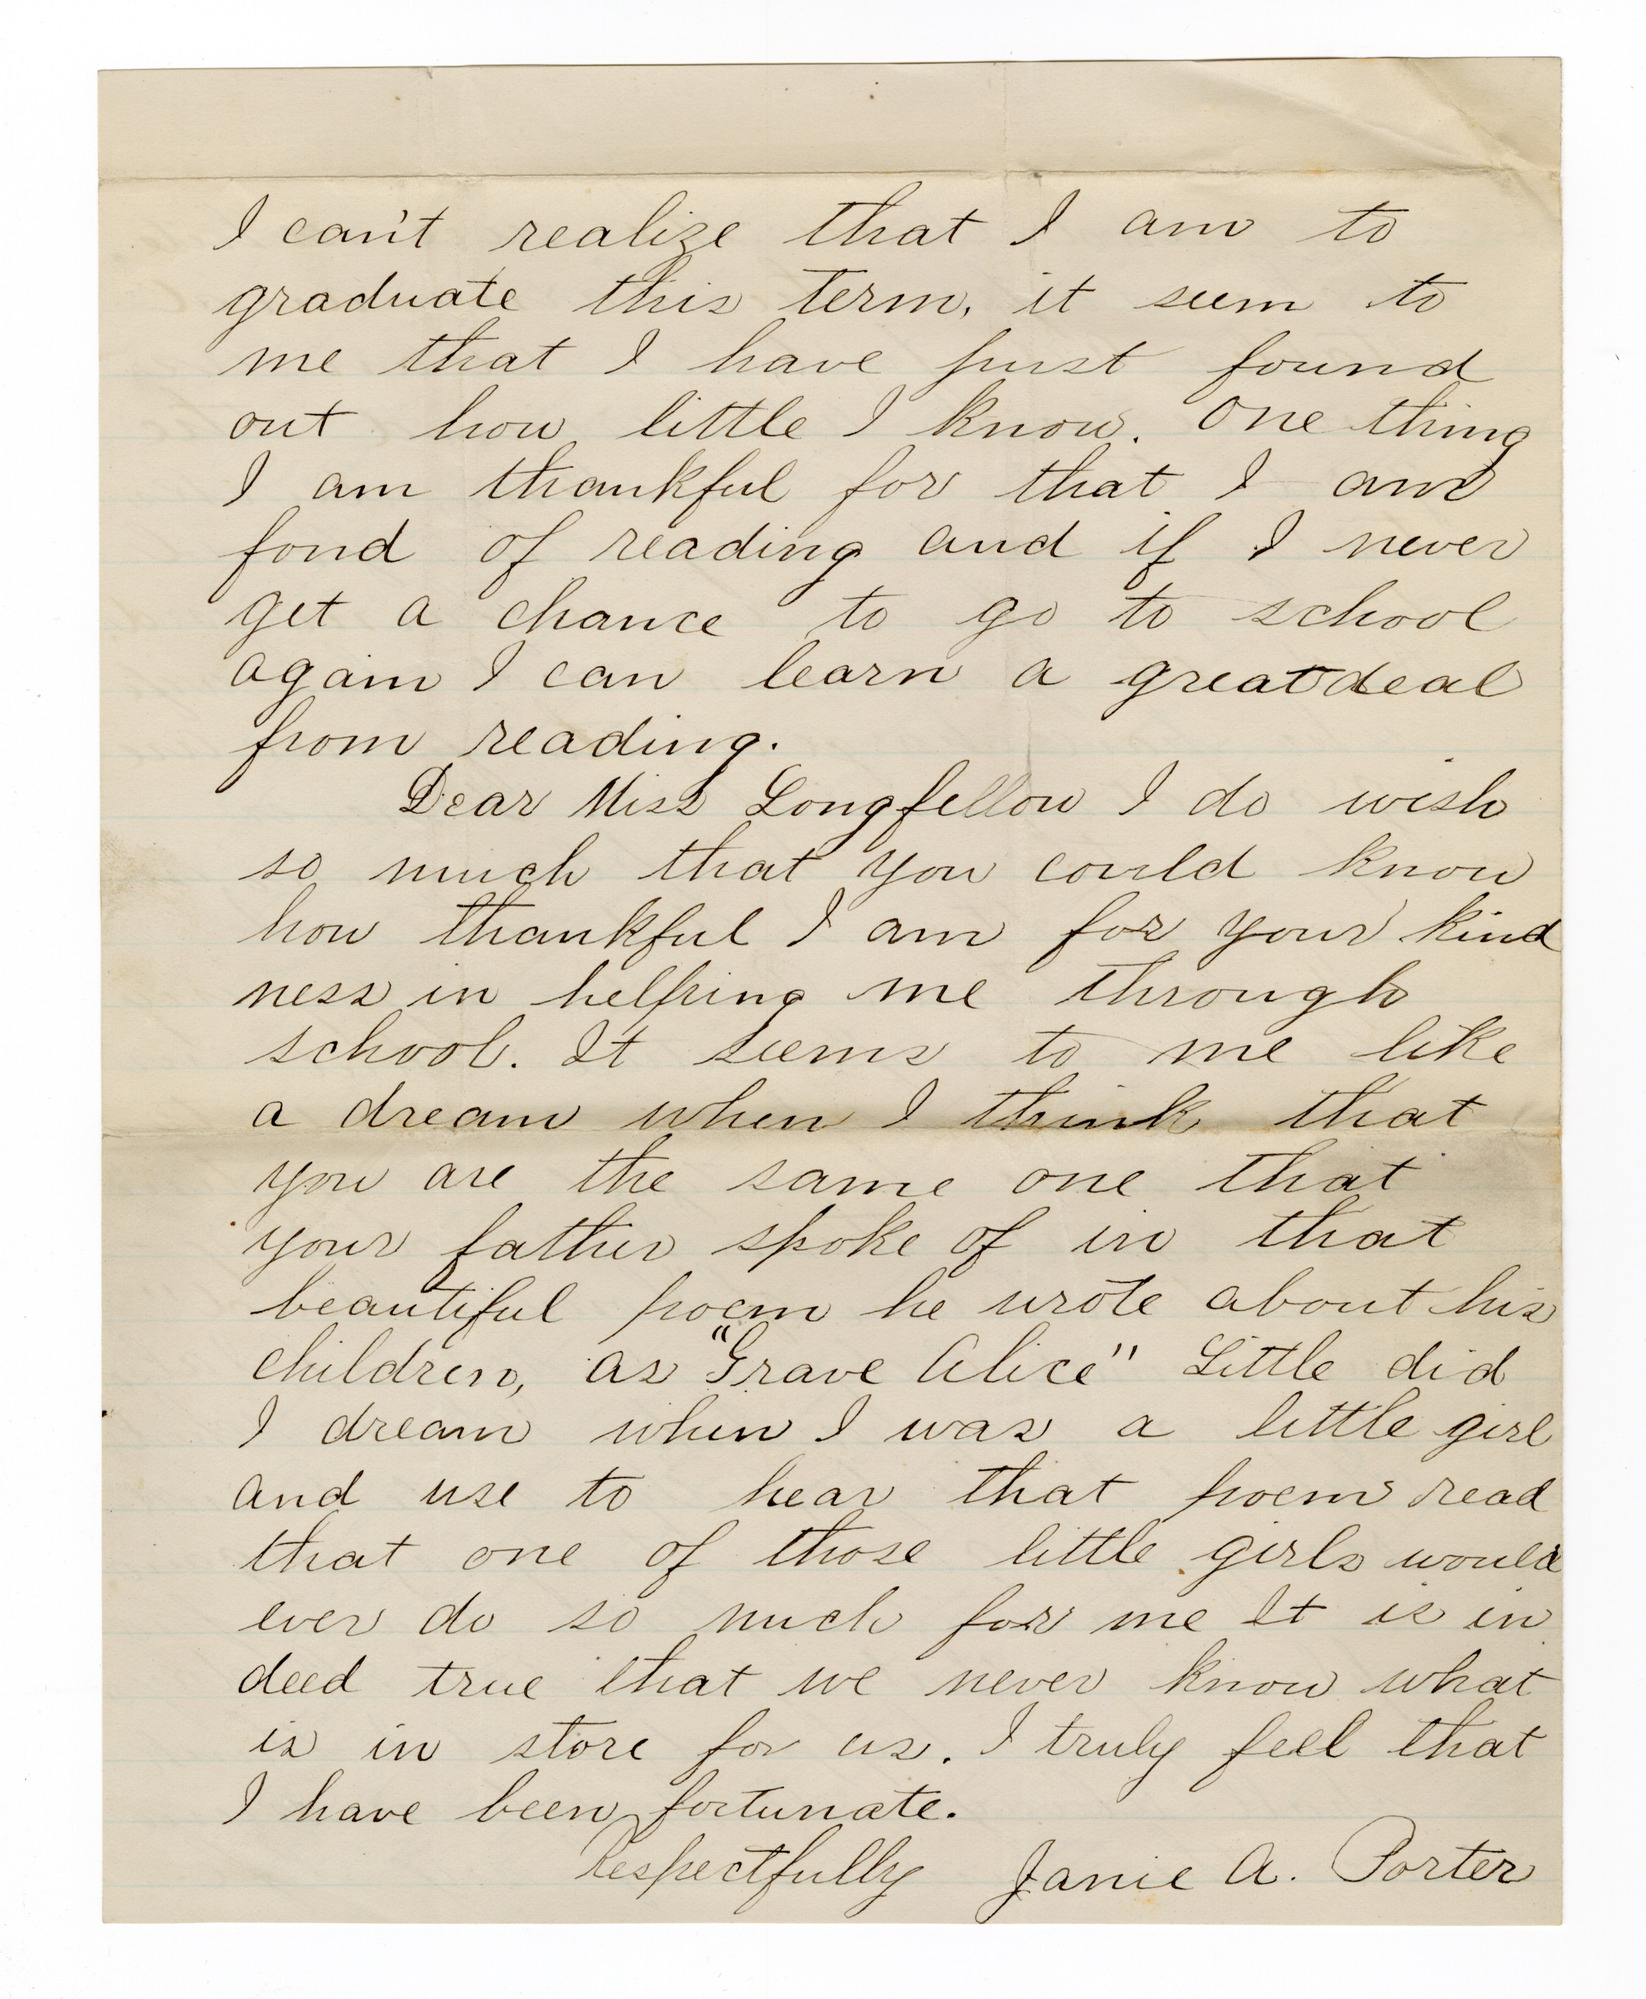 I can't realize that I am to
graduate this term, it seem to
me that I have just found
out how little I know. One thing
I am thankful for that I am
fond of reading and if I never
get a chance to go to school
again I can learn a great deal
from reading.
Dear Miss Longfellow I do wish
so much that you could know
how thankful I am for your kind
ness in helping me through
school. It seems to me like
a dream when I think that
you are the same one that
your father spoke of in that
beautiful poem he wrote about his
children, as "Grave Alice" Little did
I dream when I was a little girl
and use to hear that poem read
that one of those little girls would
ever do so much for me It is in
deed true that we never know what
is in store for us. I truly feel that
I have been fortunate.
Respectfully Janie A. Porter